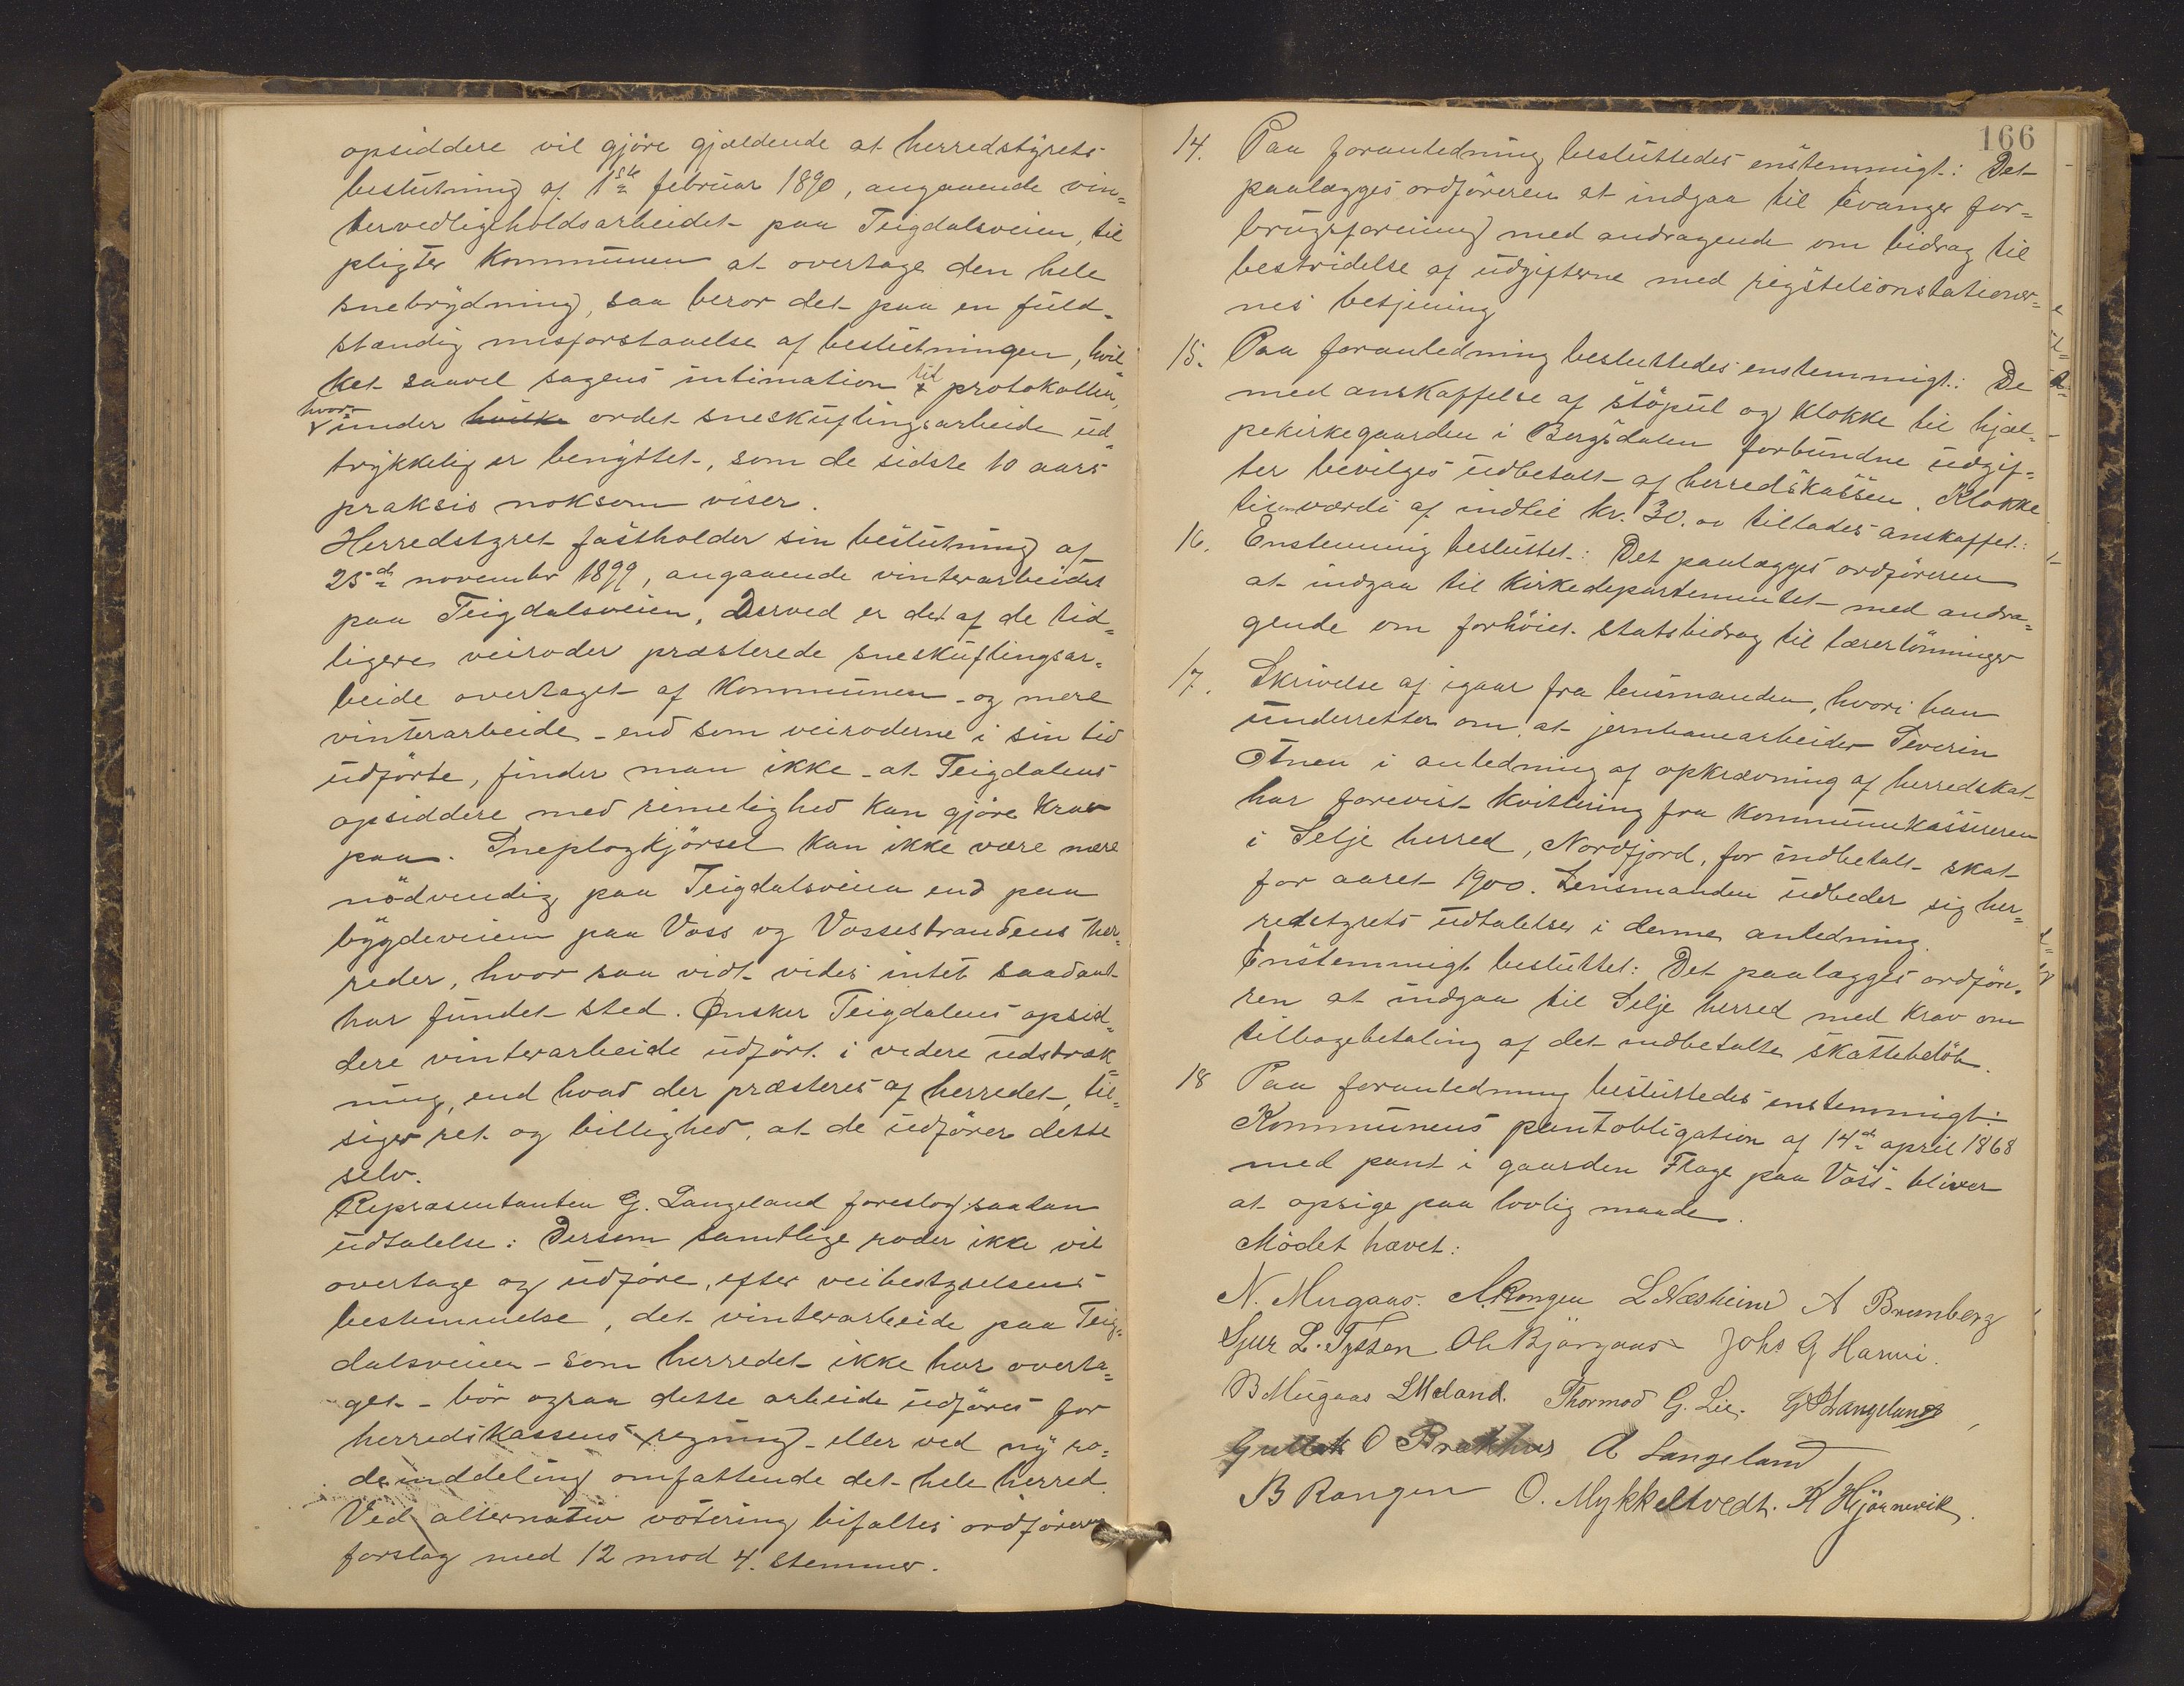 opsiddere vil gjöre gjældende at herredstyrets
beslutning af 1ste februar 1890, angaaende vin=
tervedligeholdsarbeidet paa Teigdalsveien, til
pligter Kommunen at overtage den hele
snebrydning, saa beror det paa en fuld=
stændig misforstaaelse af beslutningen, hvil=
ket saavel sagens intimation til protokollen,
hvor
under hvilke ordet sneskuflingsarbeide ud
trykkelig er benyttet, som de sidste 10 aars
praksis noksom viser.
Herredstyret fastholder sin beslutning af
25de novembr 1899, angaaende vinterarbeidet
paa Teigdalsveien, Derved er det af de tid=
ligere veiroder præsterede sneskuflingsar=
beide overtaget af Kommunen - og mere
vinterarbeide - end som veiroderne i sin tid
udförte, finder man ikke at Teigdalens
opsiddere med rimelighed kan gjöre krav
paa. Sneplogkjörsel kan ikke være mere
nödvendig paa Teigdalsveien end paa
bygdeveiene paa Voss og Vossestrandens her=
reder, hvor saa vidt vides intet saadant
har fundet sted. Ønsker Teigdalens opsid=
dere vinterarbeide udfört i videre udstræk
ning, end hvad der præsteres af herredet, til=
siger ret og billighed, at de udförer dette
selv.
Repræsentanten G. Langeland foreslog saadan
udtalelse: Dersom samtlige roder ikke vil
overtage og udföre, efter veibestyrelsens
bestemmelse, det vinterarbeide paa Teig=
dalsveien - som herredet ikke har overta=
get - bör ogsaa dette arbeide udföres for
herredskassens regning - eller ved ny ro=
deinddeling omfattende det hele herred.
Ved alternativ votering bifaltes ordförerens
forslag med 12 mod 4 stemmer.
166
14. Paa foranledning besluttedes enstemmigt: Det
paalægges ordföreren at indgaa til Evanger for=
brugsforening med andragende om bidrag til
bestridelse af udgifterne med rigstelefonstationer=
nes betjening
15. Paa foranledning besluttedes enstemmigt: De
med anskaffelse af stöpul og klokke til hjæl=
pekirkegaarden i Bergsdalen forbundne udgif=
ter bevilges udbetalt af herredskassen. Klokke
til en værdi af indtil kr. 30.00 tillades anskaffet.
16. Enstemmig besluttet: Det paalægges ordföreren
at indgaa til Kirkedepartementet med andra=
gende om forhöiet statsbidrag til lærerlönninger
17. Skrivelse af igaar fra lensmanden, hvori han
underretter om, at jernbanearbeider Severin
Otnen i anledning af opkrævning af herredskat
har forevist kvittering fra kommunekassereren
i Selje herred, Nordfjord, for indbetalt skat
for aaret 1900. Lensmanden udbeder sig her=
redstyrets udtalelse i denne anledning.
Enstemmigt besluttet: Det paalægges ordföre=
ren at indgaa til Selje herred med krav om
tilbagebetaling af det indbetalte skattebelöb.
18 Paa foranledning besluttedes enstemmigt:
Kommunens pantobligation af 14de april 1868
med pant i gaarden Flage paa Voss - bliver
at opsige paa lovlig maade.
Mödet hævet:
N. Mugaas. A. Rongen L Næsheim A Brunberg
Sjur L. Tyssen Ole Bjørgaas Johs G Harvei.
B Mugaas L Meland. Thormod G. Lie. G Langeland
Gullak O Brækhus A Langeland
B Rongen O. Mykkeltvedt. K Hjørnevik.